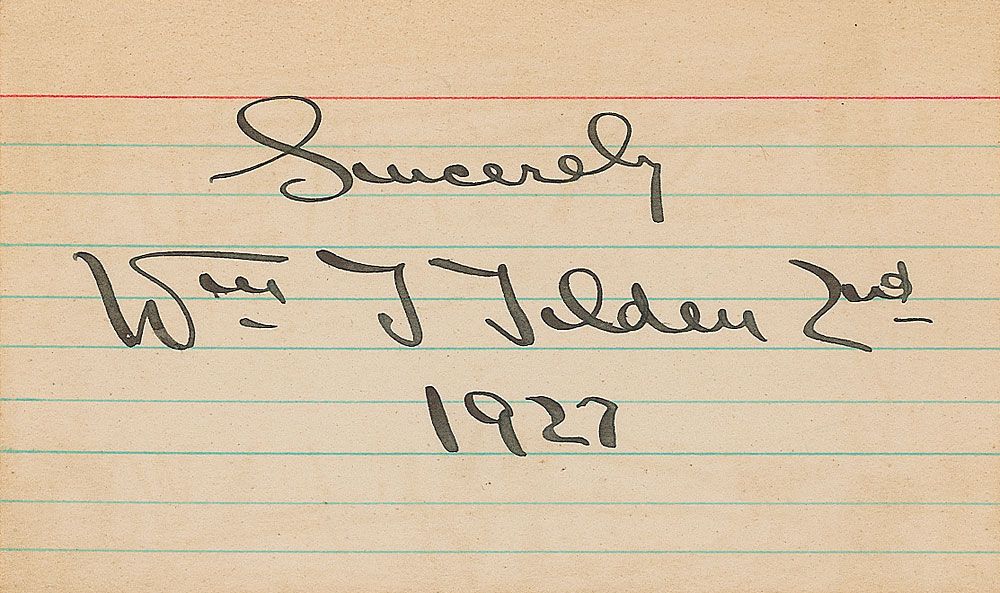 Sincerely
Wm T Tilden 2nd
1927